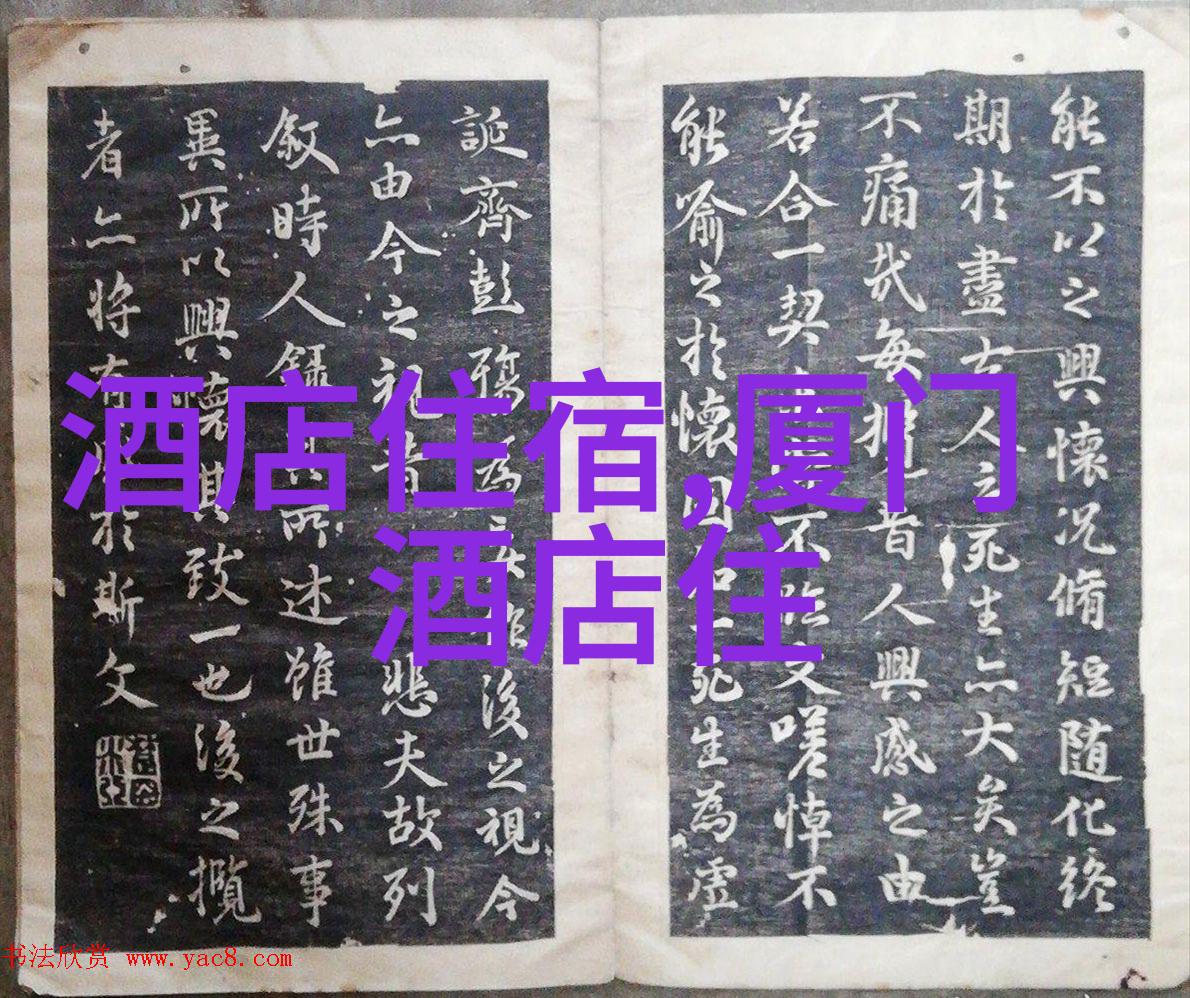 能不以之興懷況脩短随化终
期於盡古人之死生亦大矣豈
不痛哉每攬昔人興感之由
若合一契不臨文嗟悼不
能喻之於懷固知一死生為虛
誕齊彭殤為妄作後之視今
亦由今之視昔悲夫故列
叙時人錄其所述雖世殊事
異所以興懷其致一也後之攬
者亦将有於斯文
酒店住宿,厦门
酒店住
书法欣赏 www.yac8.com